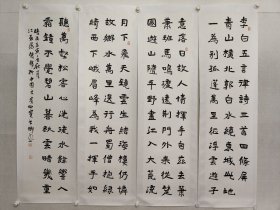 李白五言律詩三首四條屏
青山橫北郭白水繞東城此地
一為別孤蓬萬里征浮雲遊子
意落日故人情揮手自茲去蕭
蕭班馬鳴渡遠荊門外來從楚
國遊山隨平野盡江入大荒流
月下飛天鏡雲生結海樓仍憐
故鄉水萬里送行舟蜀僧抱綠
綺西下峨眉峰為我一揮手如
聽萬壑松客心洗流水餘響入
霜鐘不覺碧山暮秋雲暗幾重